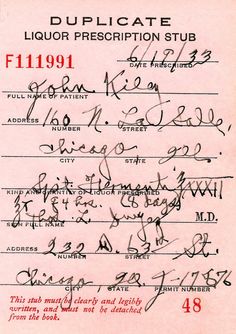 DUPLICATE
LIQUOR PRESCRIPTION STUB
F111991
6/19/33
DATE PRESCRIBED
John Kiley
FULL NAME OF PATIENT
160 N. La Salle,
ADDRESS NUMBER STREET
Chicago Ill
CITY STATE
Spt. Fermenti ℥XXXII
KIND AND QUANTITY OF LIQUOR PRESCRIBED
4 hrs. (8 days)
Thos. L. M.D.
SIGN FULL NAME
232 63rd St.
ADDRESS NUMBER STREET
Chicago Ill
CITY STATE PERMIT NUMBER
This stub must be clearly and legibly
written, and must not be detached
from the book.
48